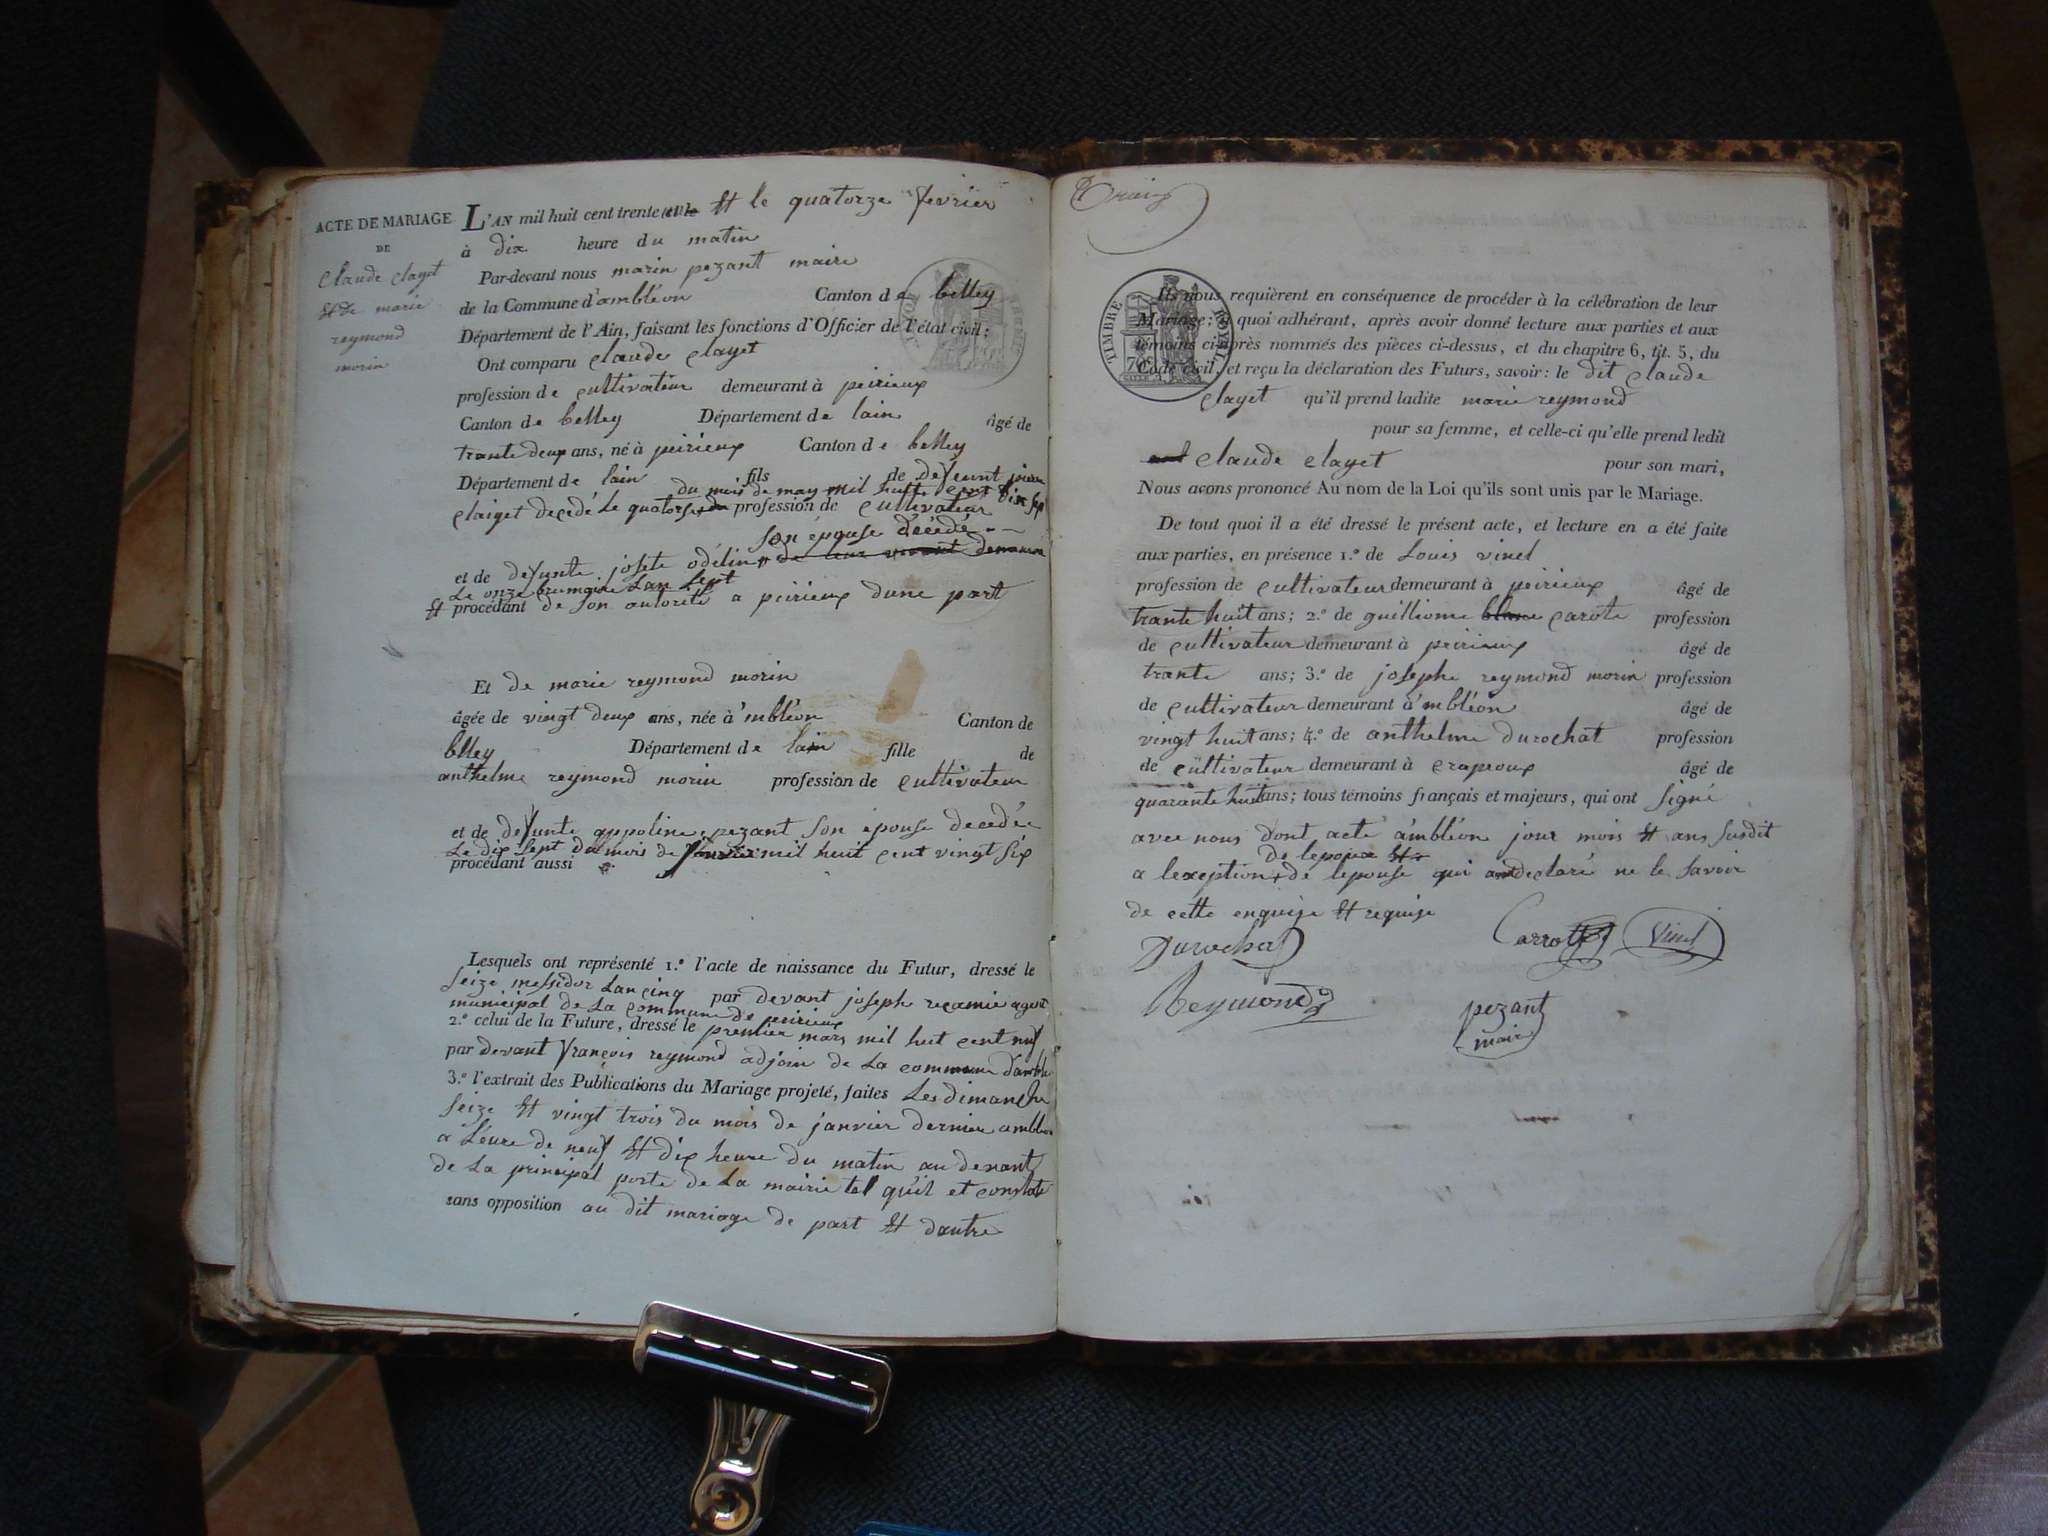 ACTE DE MARIAGE
DE
Claude Clayet
et de marie
reymond
morin
L'AN mil huit cent trente et le quatorze fevrier
à dix heure du matin
Par-devant nous marin pezant maire
de la Commune d'ambléon Canton de belley
Département de l'Ain, faisant les fonctions d'Officier de l'état civil;
Ont comparu Claude Clayet
profession de cultivateur demeurant à peirieux
Canton de belley Département de lain âgé de
trante deux ans, né à peirieux Canton de belley
Département de lain fils de defeunt pierre
du mois de may mil huit cent dix sep
claiget decedé le quatorse profession de cultivateur
son épouse décédé
et de defunte josete odelin de leur vivant demeuran
Le onze brumaire Lan sept
et procédant de son autorité a peirieux dune part
Et de marie reymond morin
âgée de vingt deux ans, née à'mbléon Canton de
blley Département de lain fille de
anthelme reymond morin profession de cultivateur
et de defunte appoline pezant son épouse decedée
Le dix sept du mois de janvier mil huit cent vingt six
procédant aussi
Lesquels ont représenté 1.º l'acte de naissance du Futur, dressé le
seize messidor Lan cinq par devant joseph recamie agent
municipal de La commune de peirieux
2.º celui de la Future, dressé le premier mars mil huit cent nuf
par devant françois reymond adjoin de La commune damble
3.º l'extrait des Publications du Mariage projeté, faites Les dimanche
seize et vingt trois du mois de janvier dernier ambleon
a Léure de neuf et dix heure du matin au devant
de La principal porte de La mairie tel qu'il et constate
sans opposition au dit mariage de part et dautre
TIMBRE ROYAL
70
Ils nous requièrent en conséquence de procéder à la célébration de leur
Mariage; à quoi adhérant, après avoir donné lecture aux parties et aux
témoins ci-après nommés des pièces ci-dessus, et du chapitre 6, tit. 5, du
Code civil, et reçu la déclaration des Futurs, savoir: le dit Claude
Clayet qu'il prend ladite marie reymond
pour sa femme, et celle-ci qu'elle prend ledit
Claude Clayet pour son mari,
Nous avons prononcé Au nom de la Loi qu'ils sont unis par le Mariage.
De tout quoi il a été dressé le présent acte, et lecture en a été faite
aux parties, en présence 1.º de Louis vinel
profession de cultivateur demeurant à peirieux âgé de
trante huit ans; 2.º de guilliome blanc carote profession
de cultivateur demeurant à peirieux âgé de
trante ans; 3.º de josephe reymond morin profession
de cultivateur demeurant à'mbléon âgé de
vingt huit ans; 4.º de anthelme durochat profession
de cultivateur demeurant à crapoux âgé de
quarante huit ans; tous témoins français et majeurs, qui ont signé
avec nous dont acte ambléon jour mois et ans susdit
de lepoux et
a lexeption de lepouse qui declaré ne le savoir
de cette enquise et requise
Durochat
Carrotte
Vinel
Reymond
pezant
maire